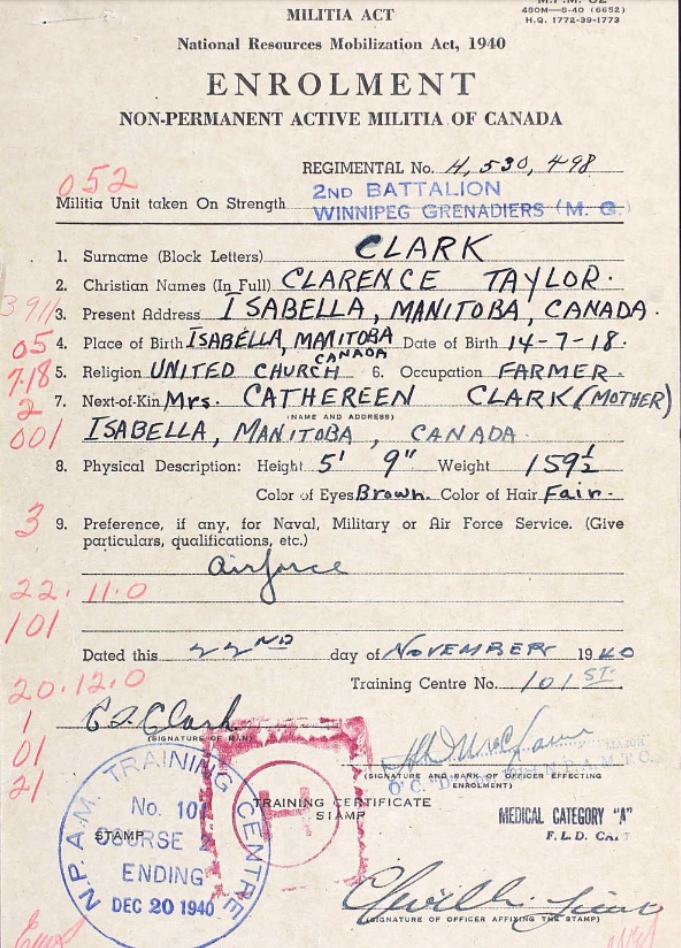 MILITIA ACT
480M—8-40 (6652)
H.Q. 1772-39-1773
National Resources Mobilization Act, 1940
ENROLMENT
NON-PERMANENT ACTIVE MILITIA OF CANADA
REGIMENTAL No. H, 530, 498
052
Militia Unit taken On Strength 2ND BATTALION
WINNIPEG GRENADIERS (M. G.)
1. Surname (Block Letters) CLARK
2. Christian Names (In Full) CLARENCE TAYLOR.
3911
3. Present Address ISABELLA, MANITOBA, CANADA.
05
4. Place of Birth ISABELLA, MANITOBA CANADA Date of Birth 14-7-18.
7.18
5. Religion UNITED CHURCH 6. Occupation FARMER.
2
7. Next-of-Kin Mrs. CATHEREEN CLARK (MOTHER)
(NAME AND ADDRESS)
001
ISABELLA, MANITOBA, CANADA.
8. Physical Description: Height 5' 9" Weight 159½
Color of Eyes Brown. Color of Hair Fair.
3
9. Preference, if any, for Naval, Military or Air Force Service. (Give
particulars, qualifications, etc.)
airforce
22.11.0
101
Dated this 22ND day of NOVEMBER 1940
Training Centre No. 101ST.
20.12.0
C.T. Clark
(SIGNATURE OF MAN)
1
01
21
MAJOR
(SIGNATURE AND RANK OF OFFICER EFFECTING
ENROLMENT)
N.P.A.M.T.C.
N.P.A.M. TRAINING CENTRE
No. 101
COURSE 2
ENDING
DEC 20 1940
STAMP
H
TRAINING CERTIFICATE
STAMP
MEDICAL CATEGORY "A"
F.L.D.
(SIGNATURE OF OFFICER AFFIXING THE STAMP)